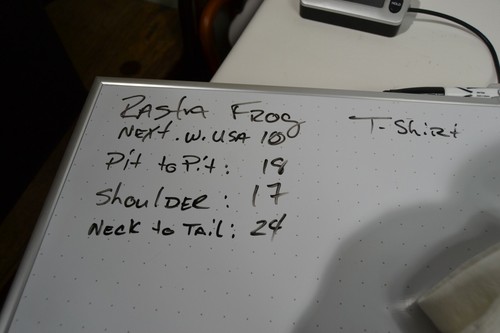 Rasta Frog
T-Shirt
Next.W.USA 10
Pit to Pit: 18
Shoulder: 17
Neck to Tail: 24